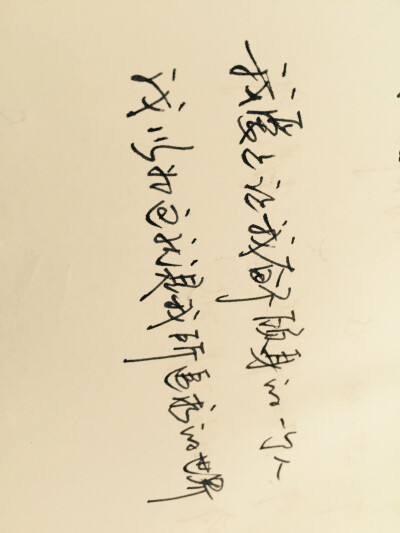 我爱上让我奋不顾身的一个人
我以为这就是我所追求的世界